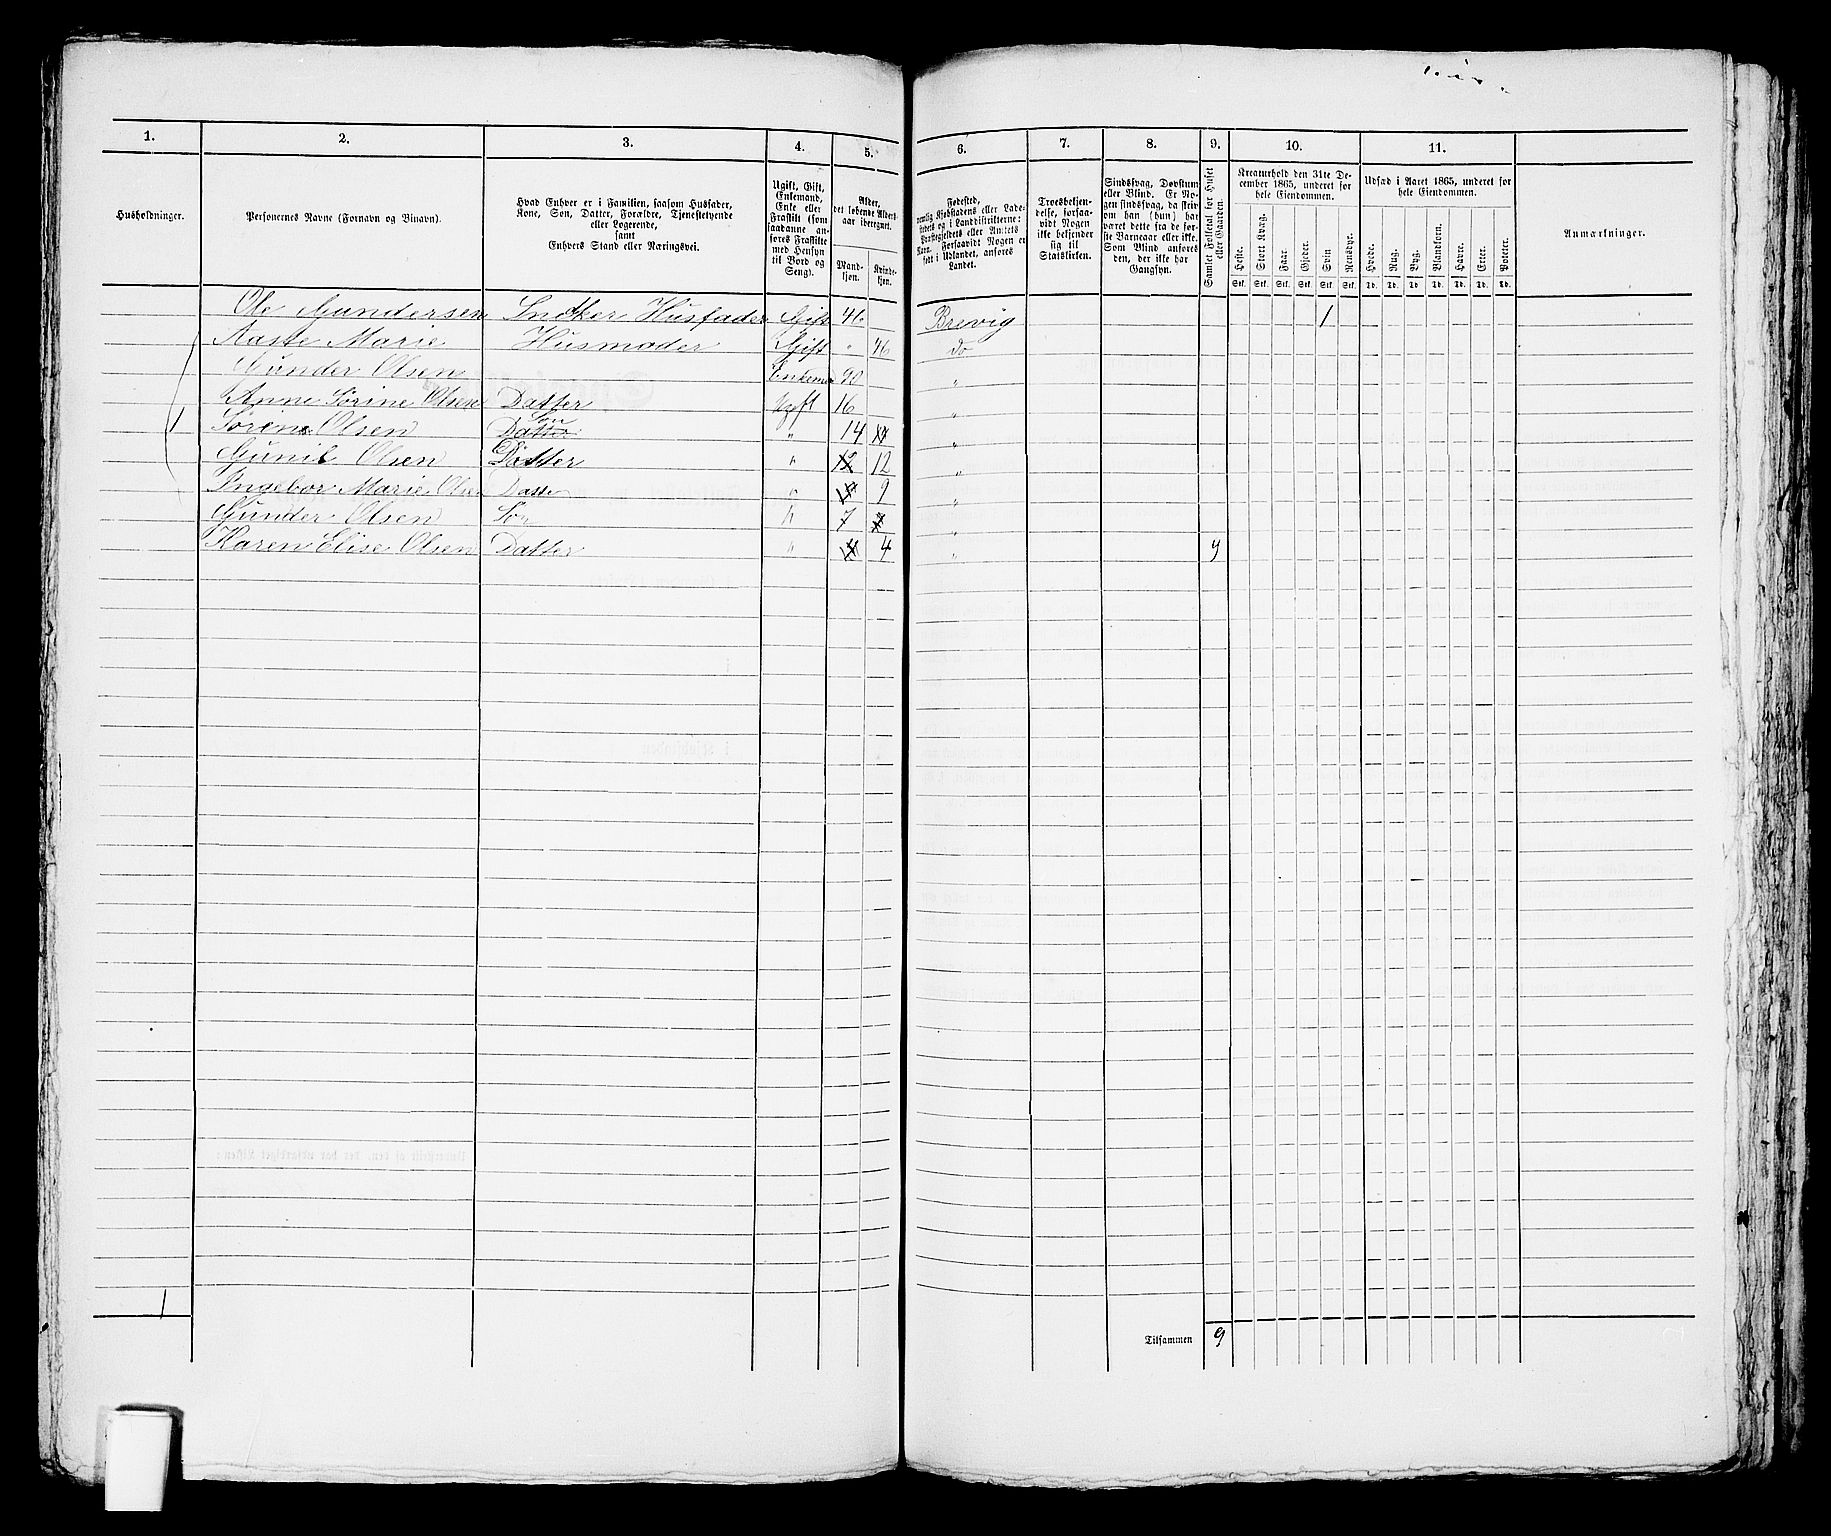 1. 2. 3. 4. 5. 6. 7. 8. 9. 10. 11.
Husholdninger.
Personernes Navne (Fornavn og Binavn).
Hvad Enhver er i Familien, saasom Husfader,
Kone, Søn, Datter, Forældre, Tjenestetyende
eller Logerende,
samt
Enhvers Stand eller Næringsvei.
Ugift, Gift,
Enkemand,
Enke eller
Fraskilt (som
saadanne an-
føres Fraskilte
med Hensyn
til Bord og
Seng).
Alder,
det løbende Alders-
aar iberegnet.
Mand-
kjøn.
Kvinde-
kjøn.
Fødested,
nemlig Kjøbstadens eller Lade-
stedets og i Landdistrikterne:
Præstegjeldets eller Amtets
Navn. Forsaavidt Nogen er
født i Udlandet, anføres
Landet.
Troesbekjen-
delse, forsaa-
vidt Nogen
ikke bekjender
sig til
Statskirken.
Sindssvag, Døvstum
eller Blind. Er No-
gen sindssvag, da skriv
om han (hun) har
været dette fra de før-
ste Barneaar eller ikke.
Som Blind anføres
den, der ikke har
Gangsyn.
Samlet Folketal for Huset
eller Gaarden.
Kreaturhold den 31te De-
cember 1865, underet for
hele Eiendommen.
Heste. Stort Kvæg. Faar. Gjeder. Svin. Rensdyr.
Stk. Stk. Stk. Stk. Stk. Stk.
Udsæd i Aaret 1865, underet for
hele Eiendommen.
Hvede. Rug. Byg. Blandkorn. Havre. Erter. Poteter.
Td. Td. Td. Td. Td. Td. Td.
Anmærkninger.
Ole Gundersen Snedker Husfader Gift 46 Brevig 1
Aaste Marie Husmoder Gift " 46 do
Gunder Olsen Enkem 90 "
Anne Sørine Olsen Datter Ugift 16 "
1 Sørine Olsen Datter Søn " 14 14 "
Gunil Olsen Datter " 12 12 "
Ingebor Marie Olsen Datte " 9 "
Gunder Olsen Søn " 7 7 "
Karen Elise Olsen Datter " 4 4 " 9
1 Tilsammen 9